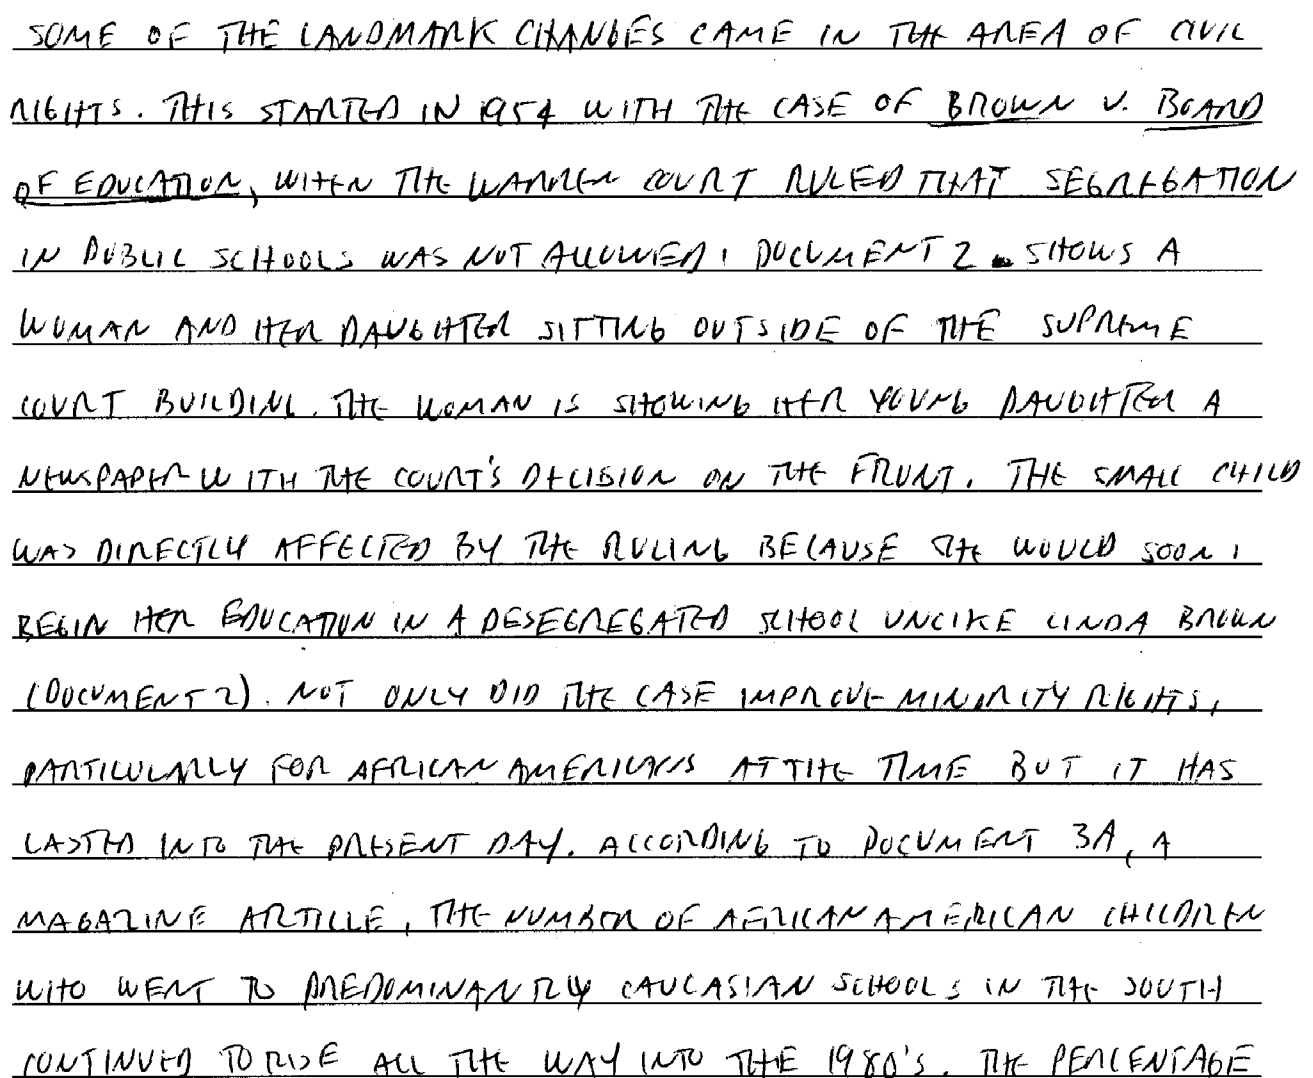 SOME OF THE LANDMARK CHANGES CAME IN THE AREA OF CIVIL
RIGHTS. THIS STARTED IN 1954 WITH THE CASE OF BROWN V. BOARD
OF EDUCATION, WHEN THE WARREN COURT RULED THAT SEGREGATION
IN PUBLIC SCHOOLS WAS NOT ALLOWED. DOCUMENT 2 SHOWS A
WOMAN AND HER DAUGHTER SITTING OUTSIDE OF THE SUPREME
COURT BUILDING. THE WOMAN IS SHOWING HER YOUNG DAUGHTER A
NEWSPAPER WITH THE COURT'S DECISION ON THE FRONT. THE SMALL CHILD
WAS DIRECTLY AFFECTED BY THE RULING BECAUSE SHE WOULD SOON
BEGIN HER EDUCATION IN A DESEGREGATED SCHOOL UNLIKE LINDA BROWN
(DOCUMENT 2). NOT ONLY DID THE CASE IMPROVE MINORITY RIGHTS,
PARTICULARLY FOR AFRICAN AMERICANS AT THE TIME BUT IT HAS
LASTED INTO THE PRESENT DAY. ACCORDING TO DOCUMENT 3A, A
MAGAZINE ARTICLE, THE NUMBER OF AFRICAN AMERICAN CHILDREN
WHO WENT TO PREDOMINANTLY CAUCASIAN SCHOOLS IN THE SOUTH
CONTINUED TO RISE ALL THE WAY INTO THE 1980'S. THE PERCENTAGE